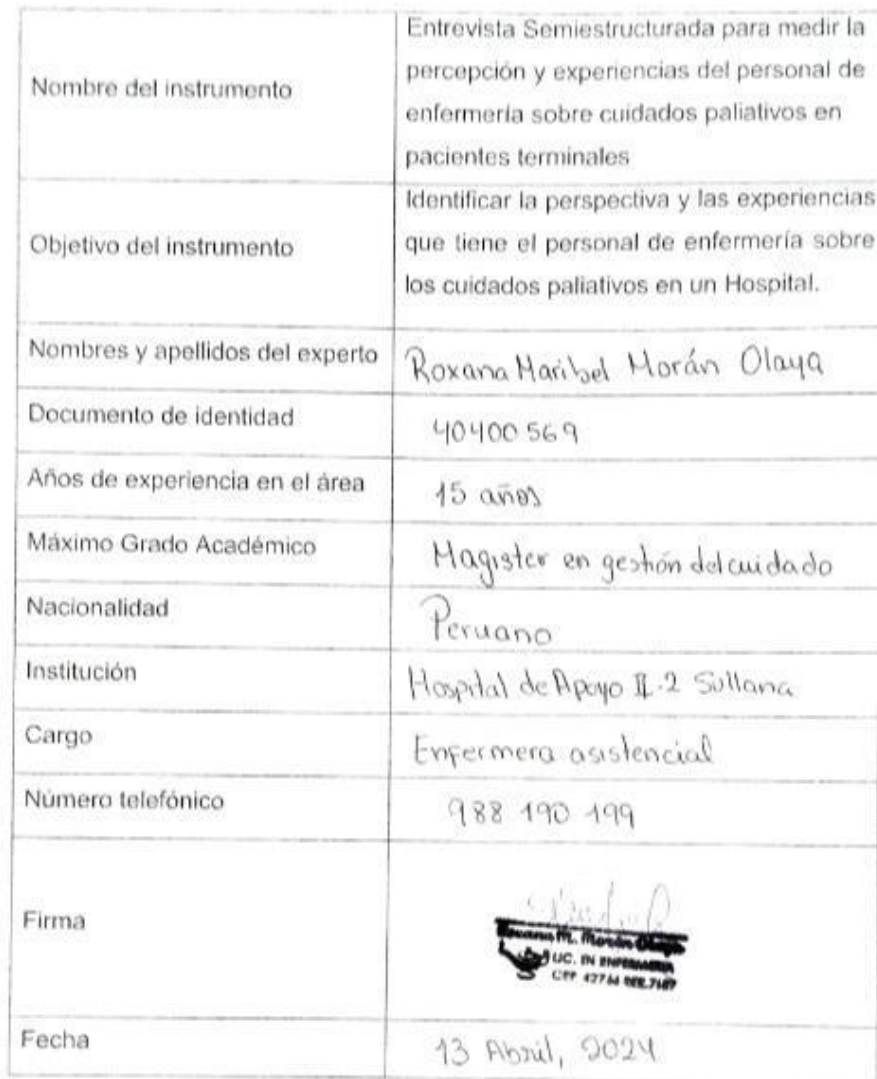 Nombre del instrumento
Entrevista Semiestructurada para medir la
percepción y experiencias del personal de
enfermería sobre cuidados paliativos en
pacientes terminales
Objetivo del instrumento
Identificar la perspectiva y las experiencias
que tiene el personal de enfermería sobre
los cuidados paliativos en un Hospital.
Nombres y apellidos del experto
Roxana Maribel Morán Olaya
Documento de identidad
40400569
Años de experiencia en el área
15 años
Máximo Grado Académico
Magister en gestión del cuidado
Nacionalidad
Peruano
Institución
Hospital de Apoyo II-2 Sullana
Cargo
Enfermera asistencial
Número telefónico
988 190 199
Firma
Roxana M. Morán Olaya
LIC. EN ENFERMERIA
Fecha
13 Abril, 2024